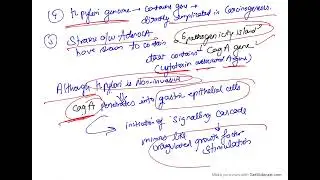 ④ H. pylori genome → contains gene directly implicated in Carcinogenesis.
⑤ Strains a/w Adenoca
have shown to contain a "pathogenicity island"
that contains CagA gene
(cytotoxin associated A gene)
Although H. pylori is Non-invasive
cagA penetrates into gastric epithelial cells
initiation of signalling cascade
mimics like
unregulated growth factor
stimulation